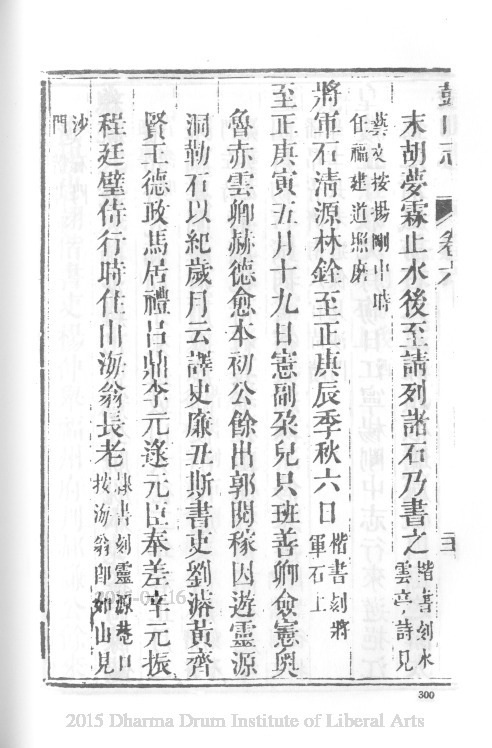 鼓山志 卷六
末胡夢霖止水後至請列諸石乃書之楷書刻水雲亭詩見
藝文按揚剛中時任福建道照磨
將軍石清源林銓至正庚辰季秋六日楷書刻將軍石上
至正庚寅五月十九日憲副朶兒只班善卿僉憲奧
魯赤雲卿赫德愈本初公餘出郭閱稼因遊靈源
洞勒石以紀歲月云譯史廉丑斯書吏劉黃齊
賢王德政馬居禮呂鼎李元逵元臣奉差辛元振
程廷璧侍行時住山海翁長老隷書刻靈源巷口按海翁卽如山見
沙門
300
2015 Dharma Drum Institute of Liberal Arts